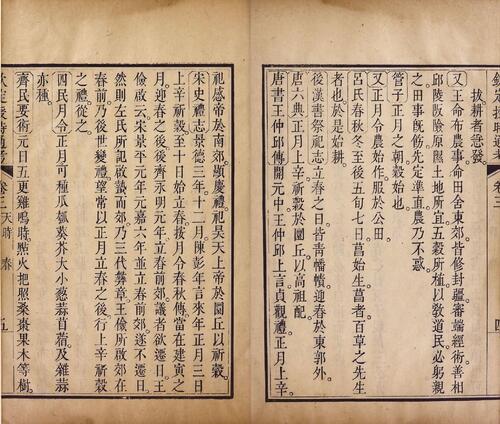 欽定授時通考 卷三 四
拔耕者急發
又王命布農事命田舍東郊皆修封疆審端經術善相
邱陵阪險原隰土地所宜五穀所植以敎道民必躬親
之田事旣飭先定準直農乃不惑
管子正月之朝穀始也
又正月令農始作服於公田
呂氏春秋冬至後五旬七日菖始生菖者百草之先生
者也於是始耕
後漢書祭祀志立春之日皆靑幡幘迎春於東郭外
唐六典正月上辛祈穀於圜丘以高祖配
唐書王仲邱傳開元中王仲邱上言貞觀禮正月上辛
祀感帝於南郊顯慶禮祀昊天上帝於圜丘以祈穀
宋史禮志景德三年十二月陳彭年言來年正月三日
上辛祈穀至十日始立春按月令春秋傳當在建寅之
月迎春之後後齊永明元年立春前郊議者欲遷日王
儉啟云宋景平元年元嘉六年並立春前郊遂不遷日
然則左氏所記啟蟄而郊乃三代彝章王儉所啟郊在
春前乃後世變禮望常以正月立春之後行上辛祈穀
之禮從之
四民月令正月可種瓜瓠葵芥大小蔥蒜苜蓿及雜蒜
亦種
齊民要術元日五更雞鳴時𤇆火把照桑棗果木等樹
欽定授時通考 卷三 天時 春 五